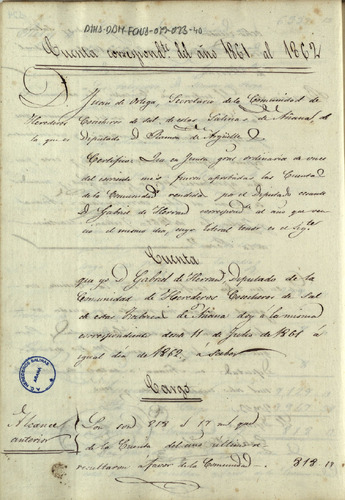 DMH-DDM-FOU3-022-023-40
Cuenta correspond.te del año 1861 al 1862
D. Juan de Ortega, Secretario de la Comunidad de
Herederos Cosecheros de sal de estas Salinas de Añana, de
la que es Diputado D. Ramon de
Certifico: Que en Junta gral ordinaria de once
del corriente mes fueron aprobadas las Cuentas
de la Comunidad rendidas por el Diputado cesante
D. Gabriel de Herran correspond.tes al año que ven-
ció el mismo dia, cuyo literal tenor es el sig.te
Cuenta
que yo D. Gabriel de Herran, Diputado de la
Comunidad de Herederos Cosecheros de Sal
de estas de Añana doy a la misma
correspondiente desde 11 de Julio de 1861 á
igual dia de 1862, á saber
Cargo
Alcance
anterior
Son son 818 17 
de la Cuenta del año ultimo
resultaron á favor de la Comunidad 818 17
SALINAS
AÑANA